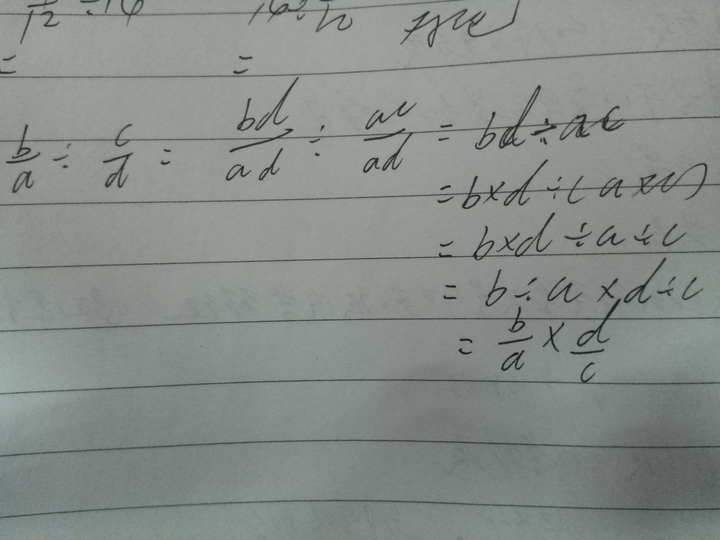 =
=
b/a ÷ c/d = bd/ad ÷ ac/ad = bd÷ac
= b×d÷(a×c)
= b×d÷a÷c
= b÷a×d÷c
= b/a × d/c